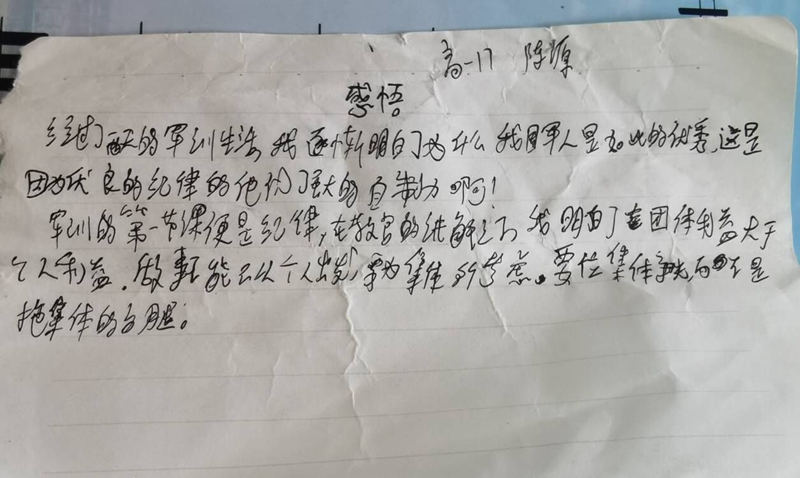 高一17 陈源
感悟
经过了两天的军训生活,我逐渐明白了为什么我国军人是如此的优秀,这是
因为优良的纪律的他们了强大的自制力啊!
军训的第一节课便是纪律,在教官的讲解之下我明白了在团体利益大于
个人利益,做事不能只从个人出发,要为集体所考虑。要位集体争光而不是
拖集体的后腿。